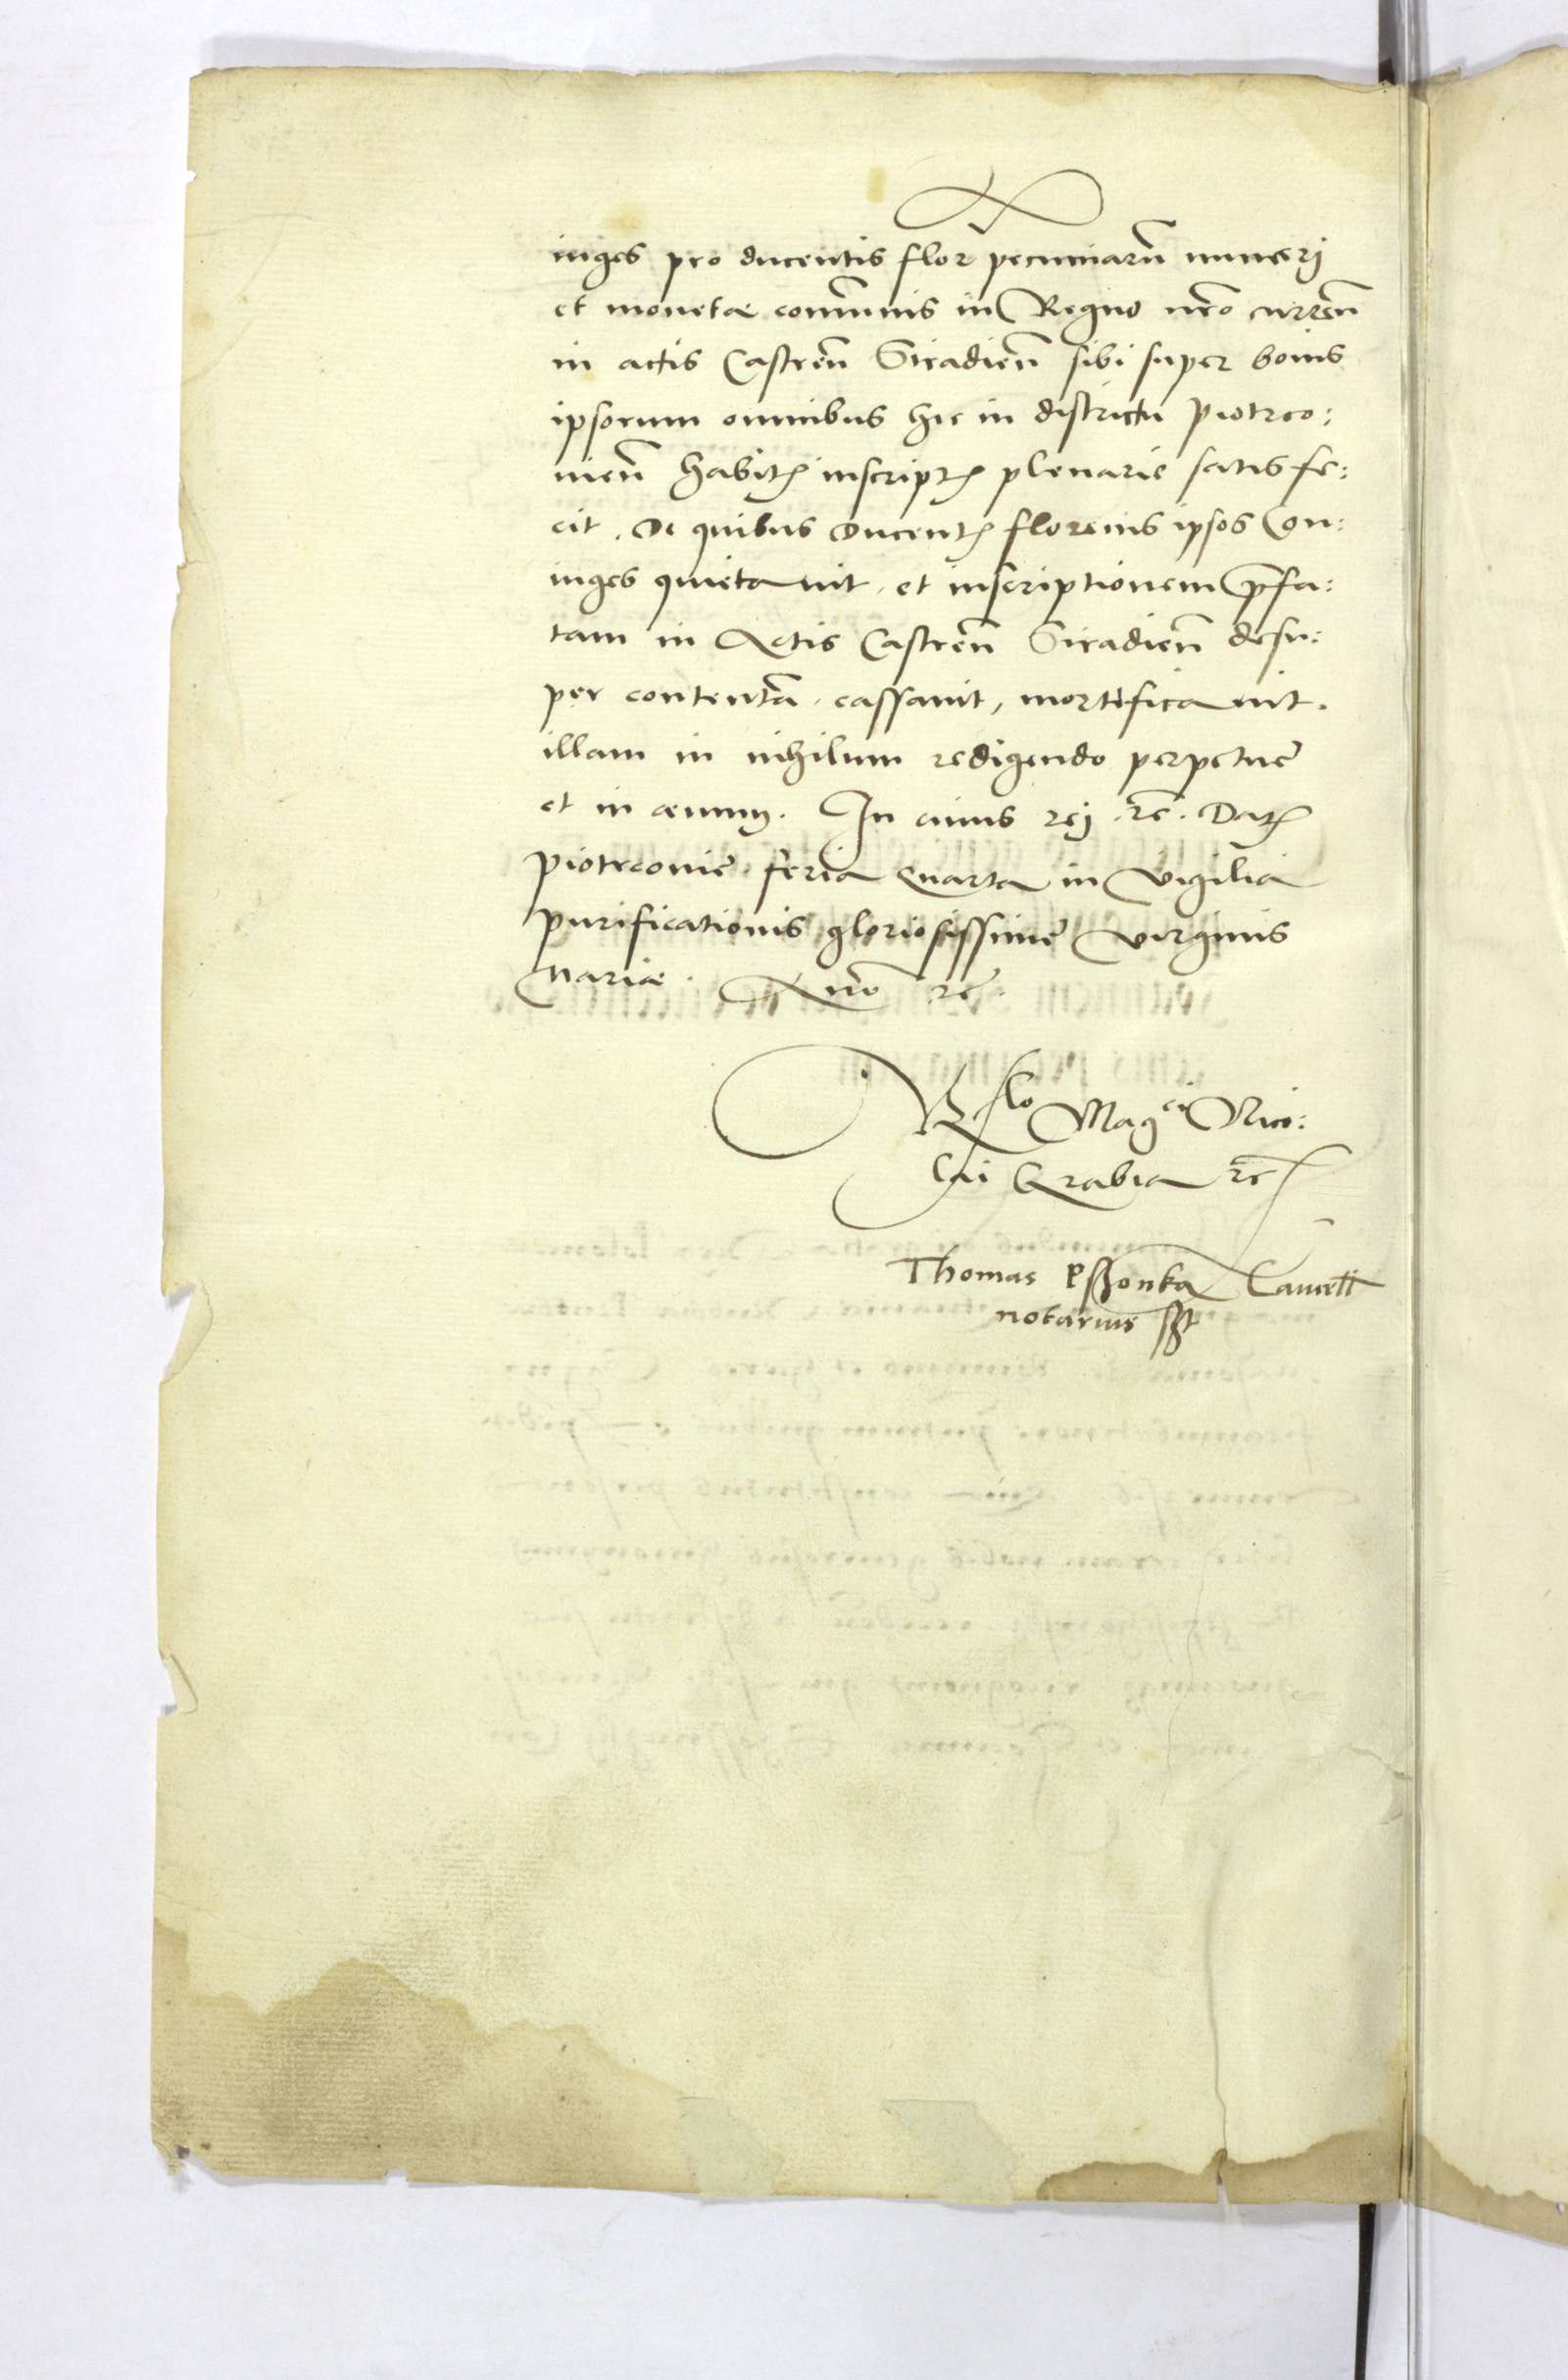 iuges pro ducentis flor pecuniarũ numeri
et monetæ communis in Regno nr̃o curreñ
in actis Castreñ Siradieñ sibi super bonis
ipsorum omnibus hic in districtu Piotrco:
nieñ habitis inscriptis plenarie satis fe:
cit. De quibus Ducentis florenis ipsos Con:
iuges quietauit, et inscriptionem p̃fa:
tam in Actis Castreñ Siradieñ desu:
per contentã, cassauit, mortificauit.
illam in nihilum redigendo perpetue
et in æuum. In cuius rei .etc. Dat
Piotrconie feria quarta in Vigilia
purificationis gloriosissime virginis
Mariæ. Anno etc.
Rlo Magci Nico:
lai Grabia etc
Thomas Pssonka Cancell
notarius sst